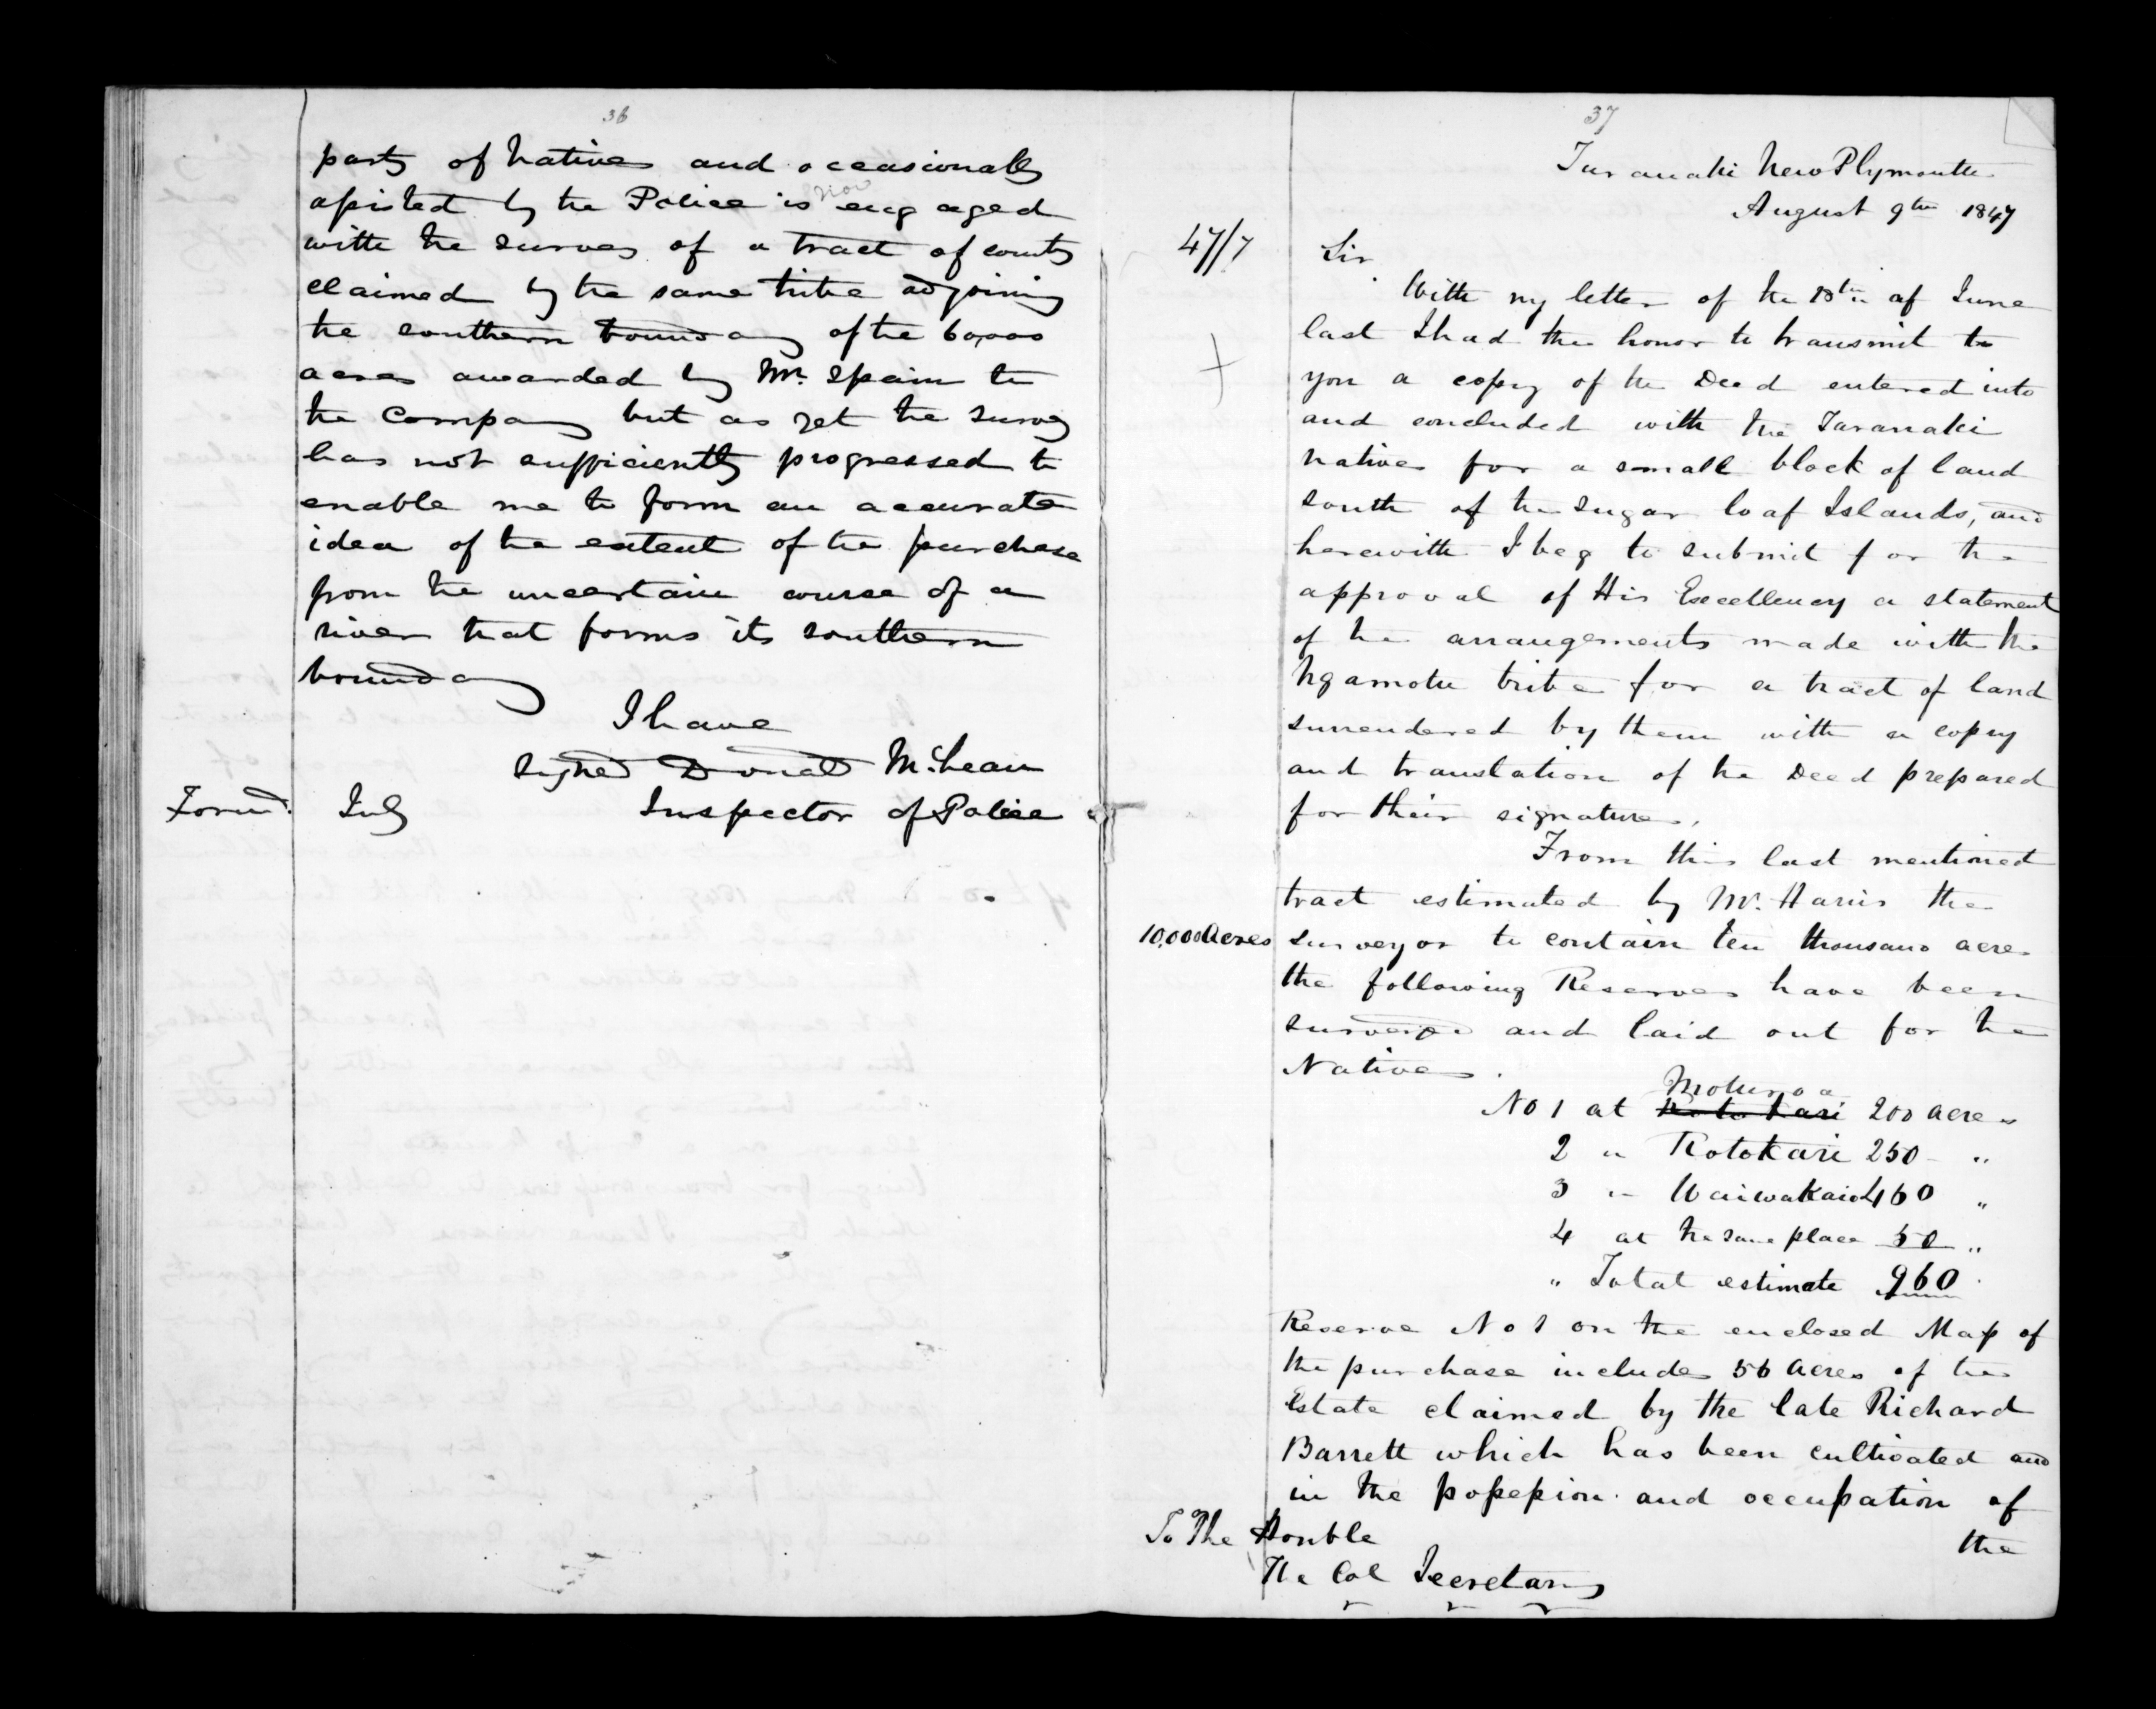 36
party of Natives and occasionally
assisted by the Police is now engaged
with the survey of a tract of country
claimed by the same tribe adjoining
the southern boundary of the 60,000
acres awarded by Mr. Spain to
the Company but as yet the survey
has not sufficiently progressed to
enable me to form an accurate
idea of the extent of the purchase
from the uncertain course of a
river that forms its southern
boundary
I have
Signed Donald McLean
Forwd. July Inspector of Police
37
Taranaki New Plymouth
August 9th 1847
47/7 Sir
With my letter of the 18th of June
last I had the honor to transmit to
you a copy of the Deed entered into
and concluded with the Taranaki
natives for a small block of land
south of the Sugar loaf Islands, and
herewith I beg to submit for the
approval of His Excellency a statement
of the arrangements made with the
Ngamotu tribe for a tract of land
surrendered by them with a copy
and translation of the Deed prepared
for their signatures.
From this last mentioned
tract estimated by Mr. Harris the
10,000 Acres surveyor to contain ten thousand acres
the following Reserves have been
surveyed and laid out for the
Natives.
Moturoa
No 1 at Rotokari 200 acres
2 " Rotokari 250 "
3 " Waiwakaio 460 "
4 at the same place 50 "
" Total estimate 960
Reserve No 1 on the enclosed Map of
the purchase includes 56 acres of the
Estate claimed by the late Richard
Barrett which has been cultivated and
in the possession and occupation of
the
To The Honble
The Col Secretary